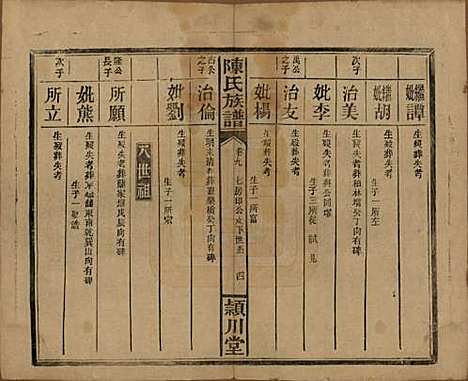 繼譚
生歿葬失考
繼妣胡
生歿葬失考
生子一所左
次子
治美
生歿失考葬柏林壋公丁向有碑
妣李
生歿失考葬與公同壋
生子三所從 試 見
萬公之子
治友
生歿葬失考
妣楊
生歿葬失考
生子一所富
陳氏族譜
卷九 七房印公支下世系 四
潁川堂
治倫
生明末清初葬曹藥橋公丁向有碑
妣劉
生歿葬失考
生子一所壋
六世祖
隆公長子
所願
生歿失考葬陳家壋民巽向有碑
妣熊
生子一
次子
所立
生歿葬失考